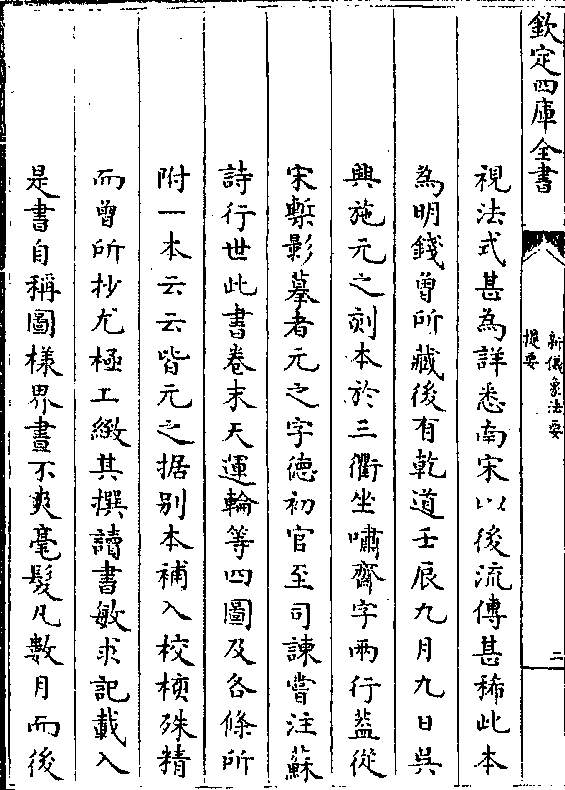 欽定四庫全書
新儀象法要
提要
二
視法式甚為詳悉南宋以後流傳甚稀此本
為明錢曾所藏後有乾道壬辰九月九日吳
興施元之刻本於三衢坐嘯齋字兩行葢從
宋槧影摹者元之字德初官至司諫嘗注蘇
詩行世此書卷末天運輪等四圖及各條所
附一本云云皆元之据别本補入校核殊精
而曾所抄尤極工緻其撰讀書敏求記載入
是書自稱圖樣界畫不爽毫髮凡數月而後